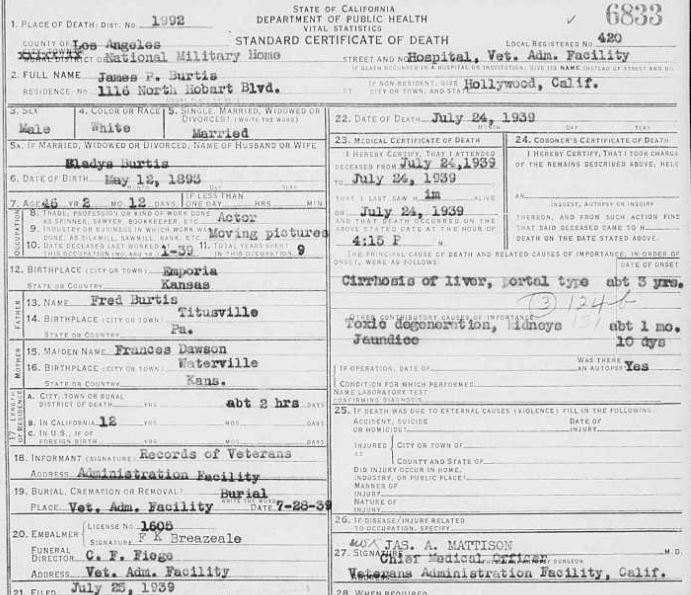 STATE OF CALIFORNIA
DEPARTMENT OF PUBLIC HEALTH
VITAL STATISTICS
STANDARD CERTIFICATE OF DEATH
6833
1. PLACE OF DEATH: DIST. NO. 1992
LOCAL REGISTERED NO. 420
COUNTY OF Los Angeles
National Military Home
STREET AND NO. Hospital, Vet. Adm. Facility
IF DEATH OCCURRED IN A HOSPITAL OR INSTITUTION, GIVE ITS NAME INSTEAD OF STREET AND NO.
2. FULL NAME James P. Burtis
RESIDENCE NO. 1116 North Hobart Blvd.
IF NON-RESIDENT, GIVE CITY OR TOWN, AND STATE Hollywood, Calif.
3. SEX Male
4. COLOR OR RACE White
5. SINGLE, MARRIED, WIDOWED OR DIVORCED? (WRITE THE WORD) Married
5A. IF MARRIED, WIDOWED OR DIVORCED, NAME OF HUSBAND OR WIFE
Gladys Burtis
6. DATE OF BIRTH May 12, 1893
MONTH DAY YEAR
7. AGE 46 YR 2 MO 12 DAYS
IF LESS THAN ONE DAY HRS MIN
OCCUPATION
8. TRADE, PROFESSION OR KIND OF WORK DONE AS SPINNER, SAWYER, BOOKKEEPER, ETC. Actor
9. INDUSTRY OR BUSINESS IN WHICH WORK WAS DONE, AS SILKMILL, SAWMILL, BANK, ETC. Moving pictures
10. DATE DECEASED LAST WORKED AT THIS OCCUPATION (MO. AND YR.) 1-39
11. TOTAL YEARS SPENT IN THIS OCCUPATION 9
12. BIRTHPLACE (CITY OR TOWN) Emporia
STATE OR COUNTRY Kansas
FATHER
13. NAME Fred Burtis
14. BIRTHPLACE (CITY OR TOWN) Titusville
STATE OR COUNTRY Pa.
MOTHER
15. MAIDEN NAME Frances Dawson
16. BIRTHPLACE (CITY OR TOWN) Waterville
STATE OR COUNTRY Kans.
17 LENGTH OF RESIDENCE
A. CITY, TOWN OR RURAL DISTRICT OF DEATH YRS abt 2 hrs DAYS
B. IN CALIFORNIA 12 YRS MOS DAYS
C. IN U.S., IF OF FOREIGN BIRTH YRS MOS DAYS
18. INFORMANT (SIGNATURE) Records of Veterans
ADDRESS Administration Facility
19. BURIAL, CREMATION OR REMOVAL? Burial
WRITE THE WORD
PLACE Vet. Adm. Facility DATE 7-28-39
20. EMBALMER LICENSE NO. 1605
SIGNATURE F K Breazeale
FUNERAL DIRECTOR C. F. Fiege
ADDRESS Vet. Adm. Facility
21. FILED July 25, 1939
22. DATE OF DEATH July 24, 1939
MONTH DAY YEAR
23. MEDICAL CERTIFICATE OF DEATH
I HEREBY CERTIFY, THAT I ATTENDED
DECEASED FROM July 24, 1939
TO July 24, 1939
THAT I LAST SAW H im ALIVE
ON July 24, 1939
AND THAT DEATH OCCURRED ON THE
ABOVE STATED DATE AT THE HOUR OF
4:15 P M.
24. CORONER'S CERTIFICATE OF DEATH
I HEREBY CERTIFY, THAT I TOOK CHARGE
OF THE REMAINS DESCRIBED ABOVE, HELD
AN
INQUEST, AUTOPSY OR INQUIRY
THEREON, AND FROM SUCH ACTION FIND
THAT SAID DECEASED CAME TO H
DEATH ON THE DATE STATED ABOVE.
THE PRINCIPAL CAUSE OF DEATH AND RELATED CAUSES OF IMPORTANCE, IN ORDER OF
ONSET, WERE AS FOLLOWS
DATE OF ONSET
Cirrhosis of liver, portal type abt 3 yrs.
3 124b
131
OTHER CONTRIBUTORY CAUSES OF IMPORTANCE
Toxic degeneration, kidneys abt 1 mo.
Jaundice 10 dys
IF OPERATION, DATE OF
WAS THERE AN AUTOPSY? Yes
CONDITION FOR WHICH PERFORMED
NAME LABORATORY TEST
CONFIRMING DIAGNOSIS
25. IF DEATH WAS DUE TO EXTERNAL CAUSES (VIOLENCE) FILL IN THE FOLLOWING
ACCIDENT, SUICIDE OR HOMICIDE? DATE OF INJURY
INJURED AT CITY OR TOWN OF
COUNTY AND STATE OF
DID INJURY OCCUR IN HOME,
INDUSTRY, OR PUBLIC PLACE?
MANNER OF INJURY
NATURE OF INJURY
26. IF DISEASE/INJURY RELATED
TO OCCUPATION, SPECIFY
27. SIGNATURE JAS. A. MATTISON M.D.
Chief Medical Officer
Veterans Administration Facility, Calif.
28. WHEN REQUIRED